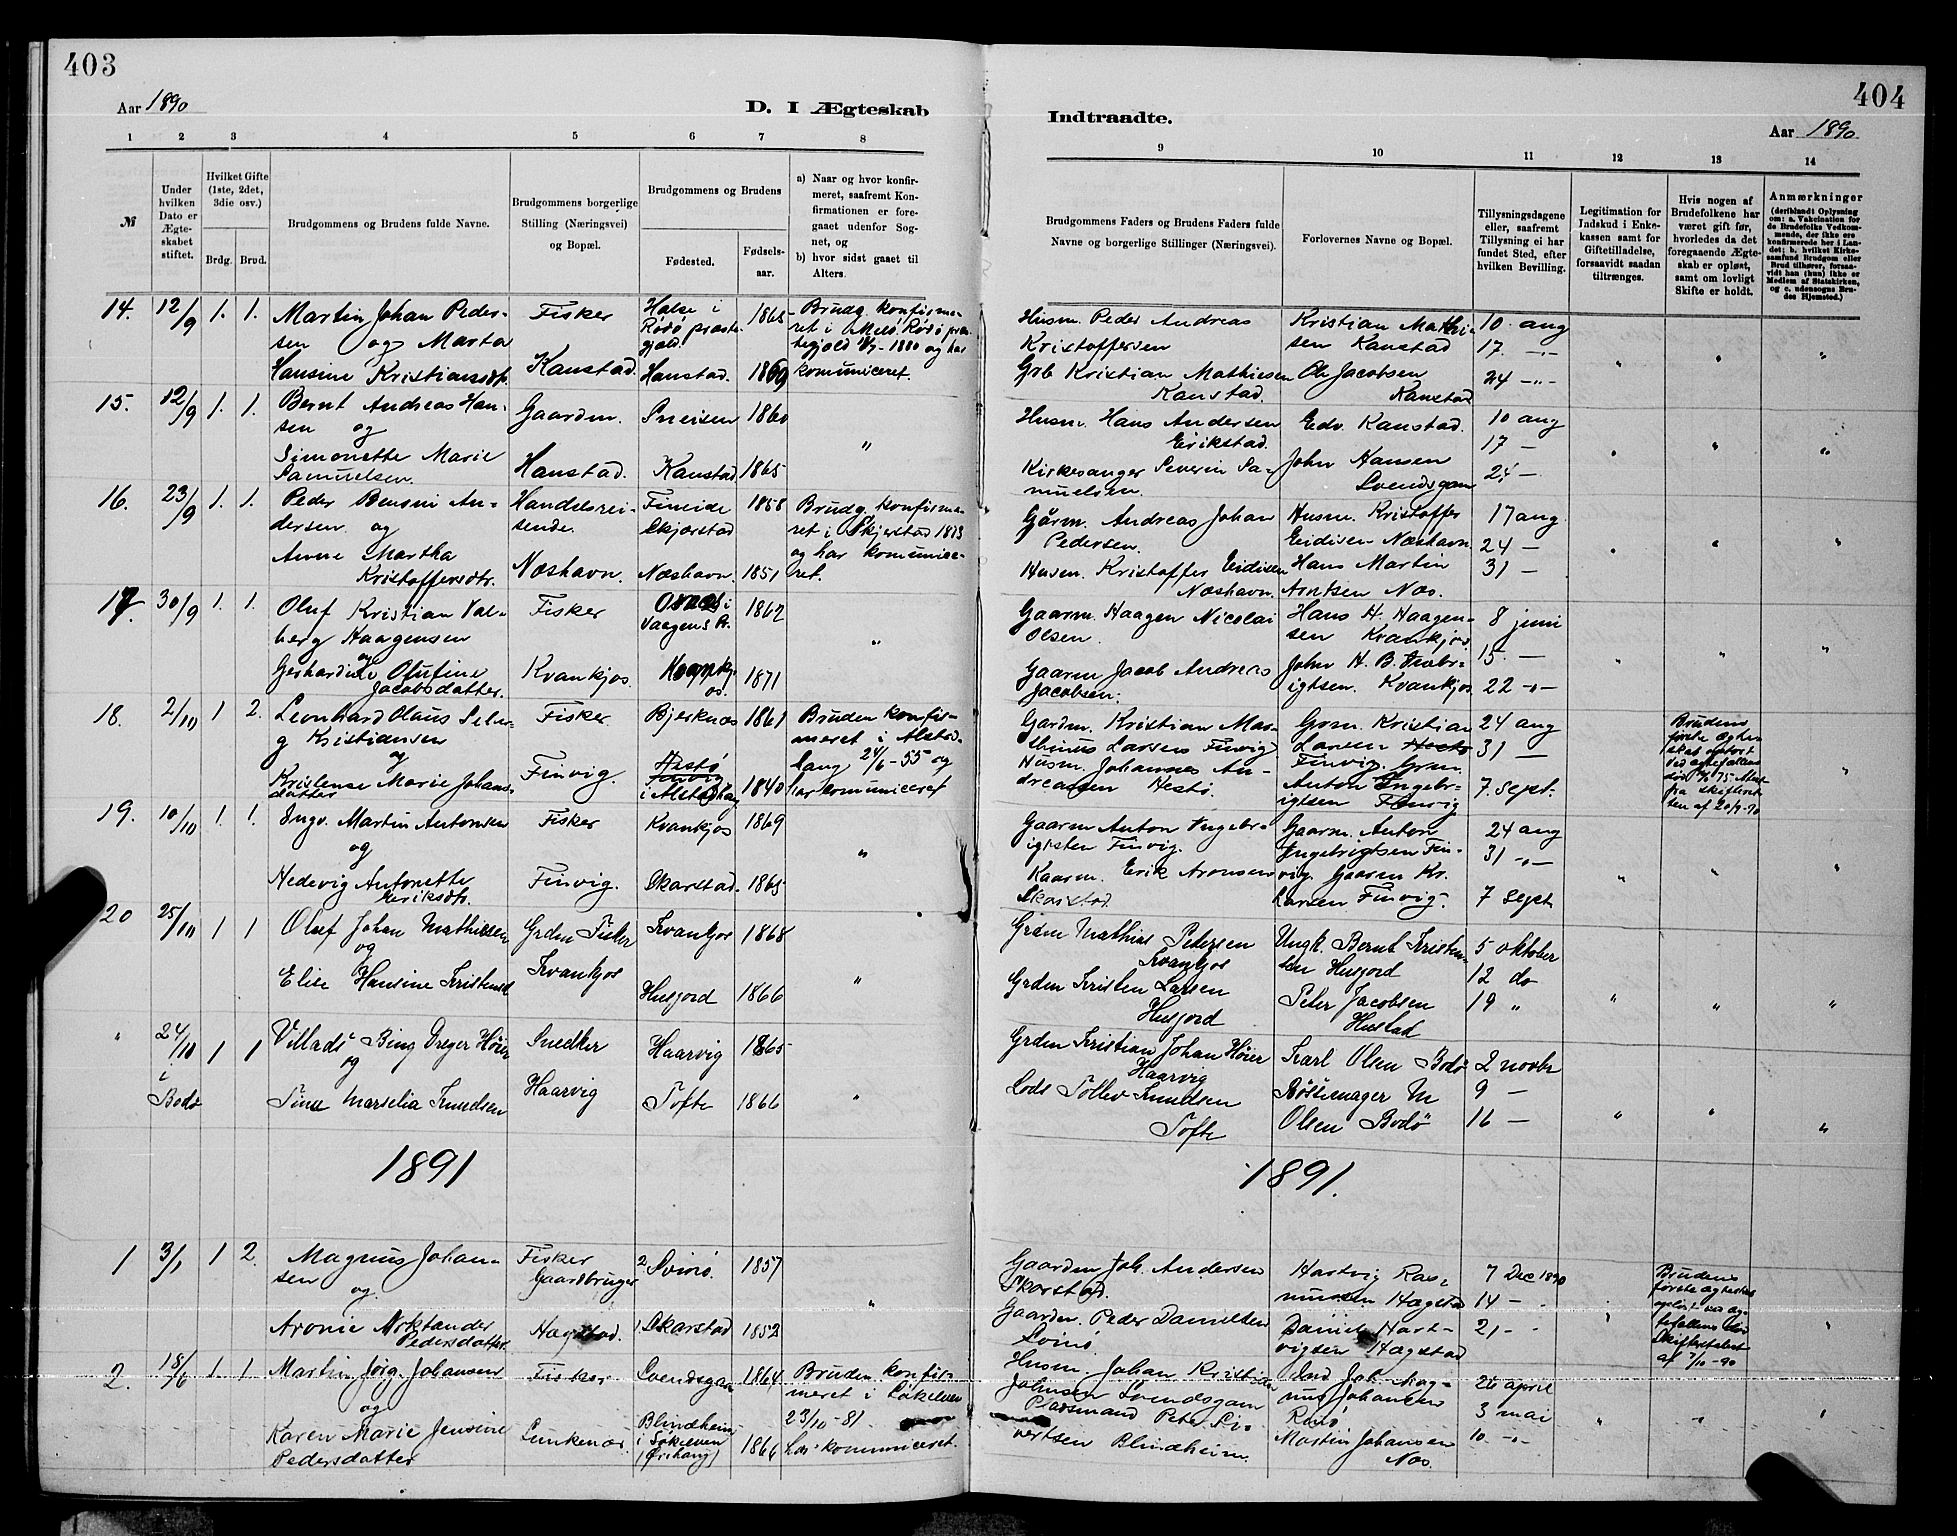 403
Aar 1890
D. I Ægteskab
1 2 3 4 5 6 7 8
№
Under hvilken Dato er Ægteskabet stiftet.
Hvilket Gifte (1ste, 2det, 3die osv.)
Brdg. Brud.
Brudgommens og Brudens fulde Navne.
Brudgommens borgerlige Stilling (Næringsvei) og Bopæl.
Brudgommens og Brudens
Fødested.
Fødselsaar.
a) Naar og hvor konfirmeret, saafremt Konfirmationen er foregaaet udenfor Sognet, og
b) hvor sidst gaaet til Alters.
14. 12/9 1. 1. Martin Johan Peder- Fisker Halse i 1865 Brudg. konfirme-
sen og Marta Rödö præste- ret i Melö, Rödö præ-
gjeld. 1880 og har
Hansine Kristiansdtr. Kanstad. Kanstad. 1869 komuniceret.
15. 12/9 1. 1. Bernt Andreas Han- Gaardm. Sneisen 1860
sen og "
Simonette Marie Kanstad. Kanstad 1865
Samuelsen.
16. 23/9 1. 1. Peder Benoni An- Handelsrei- Fineide 1858 Brudg. konfirme-
dersen og sende. Skjærstad ret i Skjerstad 1873
Anne Martha og har komunice-
Kristoffersdtr. Næshavn. Næshavn. 1851 ret.
17. 30/9 1. 1. Oluf Kristian Val- Fisker i 1862
berg Haagensen Vaagens Pr. "
og
Gerhardine Olufine Kvankjos. 1871
Jacobsdatter.
18. 2/10 1 2. Leonhard Olaus Sele- Fisker Bjerknæs 1861 Bruden konfir-
g Kristiansen meret i Alstad-
og Finvig. Hestö haug 24/6-55 og
Kristense Marie Johans- i Alstadhaug 1840 har komuniceret
datter
19. 10/10 1. 1. Ingv. Martin Antonsen Fisker Kvankjos 1869
og "
Hedevig Antonette Finvig. Skarstad. 1865
Eriksdtr.
20 25/10 1 1 Oluf Johan Mathisen Grdm Fisker Kvankjos 1868
og
Elise Hansine Kristensd Kvankjos Husjord 1866 "
" 24/10 1 1 Villads Bing Dreyer Höier Snedker Haarvig 1865
i og
Bodø Tine Marselia Knudsen Haarvig Tofte 1866 "
1891
1 3/1 1 2. Magnus Johan- Fisker 2 Svinö. 1857
sen Gaardbruger
og "
Aronie Norktander Hægstad. 1 Skarstad 1852
Pedersdatter.
2. 18/6 1. 1. Martin Jörg. Johansen Fisker Svendsgam 1864 Bruden konfir-
og meret i Sökelven
Karen Marie Jensine Lunkenæs. Blindheim 23/10-81.
Pedersdatter i Sökelven 1866 har kommuniceret.
(Ørskaug)
404
Indtraadte.
Aar 1890.
9 10 11 12 13 14
Brudgommens Faders og Brudens Faders fulde Navne og borgerlige Stillinger (Næringsvei).
Forlovernes Navne og Bopæl.
Tillysningsdagene eller, saafremt Tillysning ei har fundet Sted, efter hvilken Bevilling.
Legitimation for Indskud i Enkekassen samt for Giftetilladelse, forsaavidt saadan tiltrænges.
Hvis nogen af Brudefolkene har været gift før, hvorledes da det foregaaende Ægteskab er opløst, samt om lovligt Skifte er holdt.
Anmærkninger
(deriblandt Oplysning om: a. Vakcination for de Brudefolks Vedkommende, der ikke ere konfirmerede her i Landet; b. hvilket Kirkesamfund Brudgom eller Brud tilhører, forsaavidt han (hun) ikke er Medlem af Statskirken, og c. udensogns Brudes Hjemsted.)
Husm. Peder Andreas Kristian Mathi- 10 aug
Kristoffersen sen Kanstad 17 -"-
Grb Kristian Mathiesen Ole Jacobsen 24 -"-
Kanstad. Kanstad
Husm. Hans Andersen Edv. Kanstad. 10 aug
Erikstad. 17 -
Kirkesanger Severin Sa- John Hansen 24 -
muelsen. Svendsgam
Gårm. Andreas Johan Husm. Kristoffer 17 aug
Pedersen. Eidisen Næshavn 24 -
Husm. Kristoffer Eidisen Hans Martin 31 -
Næshavn. Arntsen Næs.
Gaarm. Haagen Nicolai Hans H. Haagen- 8 juni
Olsen. sen Kvankjos.
Gaarm Jacob Andreas John H. B. Inebr- 15. -
Jacobsen. igtsen. Kvankjos 22 -"-
Gardm. Kristian Mar- Grm. Kristian 24 aug Brudens
thinus Larsen Finvig Larsen 31 - første Ægte-
Husm. Johannes An- Finvig. Grm. skab opløst
dreassen Hestö. Anton Ingebr- 7. Sept. ved
igtsen Finvig fra skifteret-
ten af 20/9-90
Gaarm Anton Ingebr- Gaarm. Anton 24 aug
igtsen Finvig. Ingebrigtsen Fin- 31 -"-
Kaarm. Erik Aronsen vig. Gaarm Kr.
Skarstad. Larsen Finvig. 7 Sept
Grdm Mathias Petersen Ungk. Bernt Kristen- 5 oktober
Kvankjos sen Husjord 12 do
Grdm Kristen Larsen Peter Jacobsen 19 "
Husjord Hustad
Grdm Kristian Johan Höier Karl Olsen Bodö 2 novbr
Haarvig 9 -
Lods Tollev Knudsen M
Tofte Olsen Bodö 16 -
1891.
Gaardm Joh. Andersen Hartvig Ras- 7 Dec 1890 Brudens
Skarstad. mussen Hægstad 14 - første ægteskab
Gaardm. Peder Danielsen Daniel Hart- 21 - opløst ved æg-
Svinö. vigsen Hægstad tefællens död
af 7/10-90
Husm. Johan Kristian Joh. Mag- 26 april
Johnsen Svendsgam nus Johansen 3 mai
Pladsmand Peter Si- 10. -"-
vertsen Blindheim. Martin Johansen
Næs.